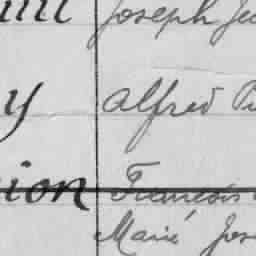 Joseph
y Alfred
ion François
Marie Jos